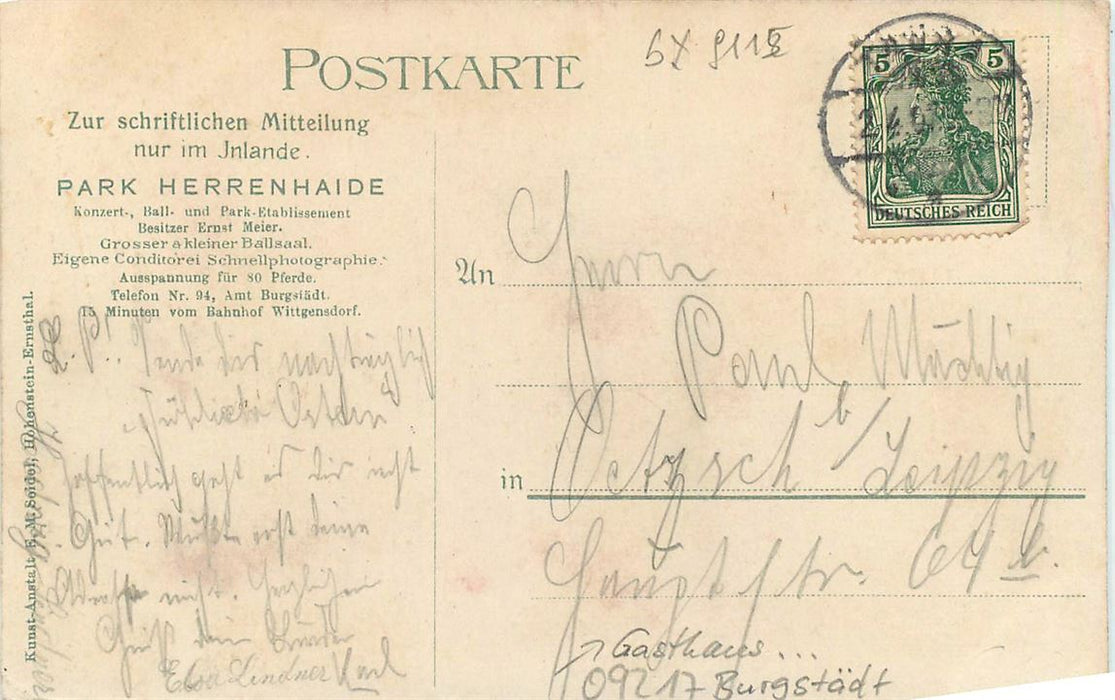 POSTKARTE
bX 9115
Zur schriftlichen Mitteilung
nur im Jnlande.
PARK HERRENHAIDE
Konzert-, Ball- und Park-Etablissement
Besitzer Ernst Meier.
Grosser & kleiner Ballsaal.
Eigene Conditorei Schnellphotographie.
Ausspannung für 80 Pferde.
Telefon Nr. 94, Amt Burgstädt.
15 Minuten vom Bahnhof Wittgensdorf.
Kunst-Anstalt E. M. Seidel, Hohenstein-Ernsthal.
L. P! Sende dir nachträglich
Ostern
Hoffentlich geht es dir recht
Gut. Wußte erst deine
Adresse nicht. Herzlichen
Gruß dein Bruder
Karl
Elsa Lindner
5 5
DEUTSCHES REICH
An Herrn
Paul Mächtig
in Oetzsch b/ Leipzig
Hauptstr. 64 b.
→ Gasthaus ...
09217 Burgstädt